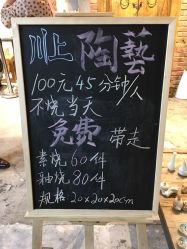 川上 陶藝
100元45分钟/人
不烧当天
免费 带走
素烧60件
釉烧80件
规格20×20×20cm